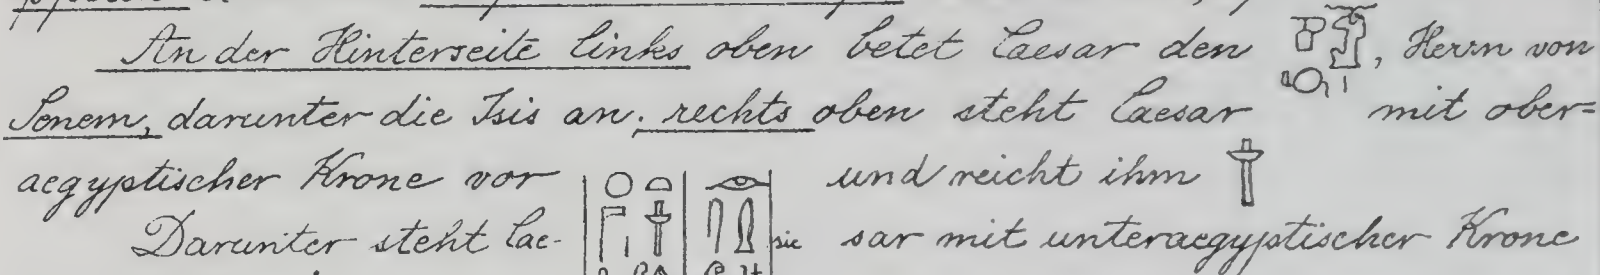 An der Hinterseite links oben betet Caesar den , Herrn von
Senem, darunter die Isis an; rechts oben steht Caesar mit ober=
aegyptischer Krone vor und reicht ihm
Darunter steht Cae- sic sar mit unteraegyptischer Krone